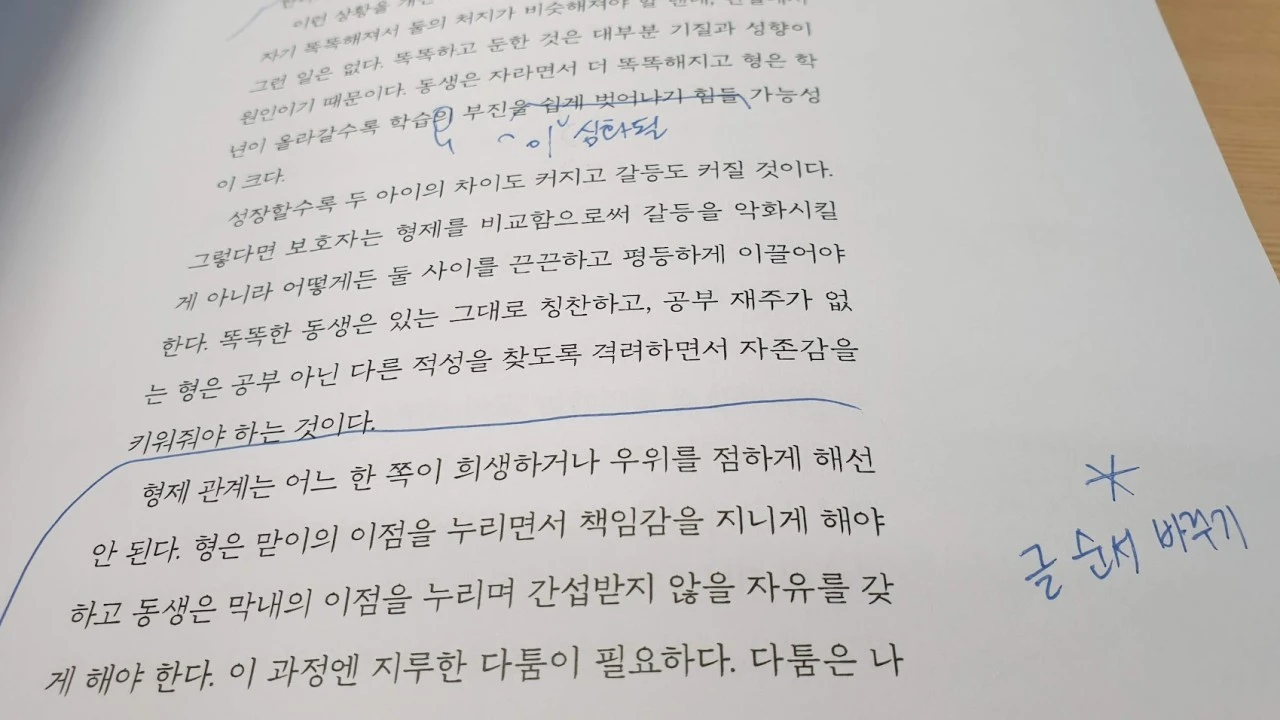 이런 상황을 개선
자기 똑똑해져서 둘의 처지가 비슷해져야 할 텐데,
그런 일은 없다. 똑똑하고 둔한 것은 대부분 기질과 성향이
원인이기 때문이다. 동생은 자라면서 더 똑똑해지고 형은 학
년이 올라갈수록 학습의 부진을 쉽게 벗어나기 힘들 가능성
이 심화될
이 크다.
성장할수록 두 아이의 차이도 커지고 갈등도 커질 것이다.
그렇다면 보호자는 형제를 비교함으로써 갈등을 악화시킬
게 아니라 어떻게든 둘 사이를 끈끈하고 평등하게 이끌어야
한다. 똑똑한 동생은 있는 그대로 칭찬하고, 공부 재주가 없
는 형은 공부 아닌 다른 적성을 찾도록 격려하면서 자존감을
키워줘야 하는 것이다.
형제 관계는 어느 한 쪽이 희생하거나 우위를 점하게 해선
안 된다. 형은 맏이의 이점을 누리면서 책임감을 지니게 해야
하고 동생은 막내의 이점을 누리며 간섭받지 않을 자유를 갖
게 해야 한다. 이 과정엔 지루한 다툼이 필요하다. 다툼은 나
글 순서 바꾸기